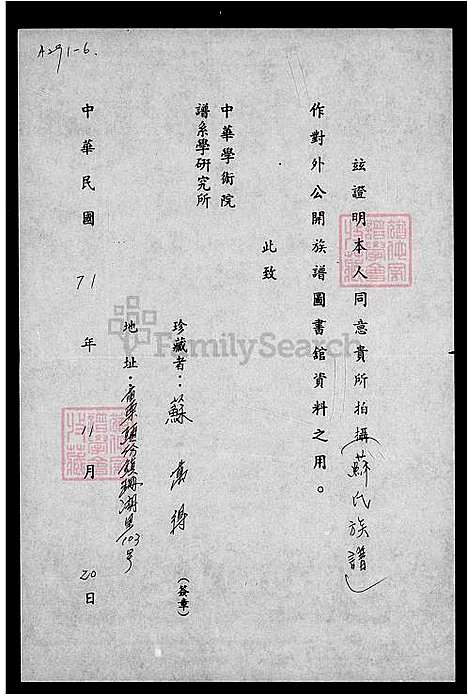 A291-6.
茲證明本人同意貴所拍攝(蘇氏族譜)
作對外公開族譜圖書舘資料之用。
此致
中華學術院
譜系學研究所
珍藏者：蘇 (簽章)
地址：屏東 103号
中華民國71年11月20日
FamilySearch